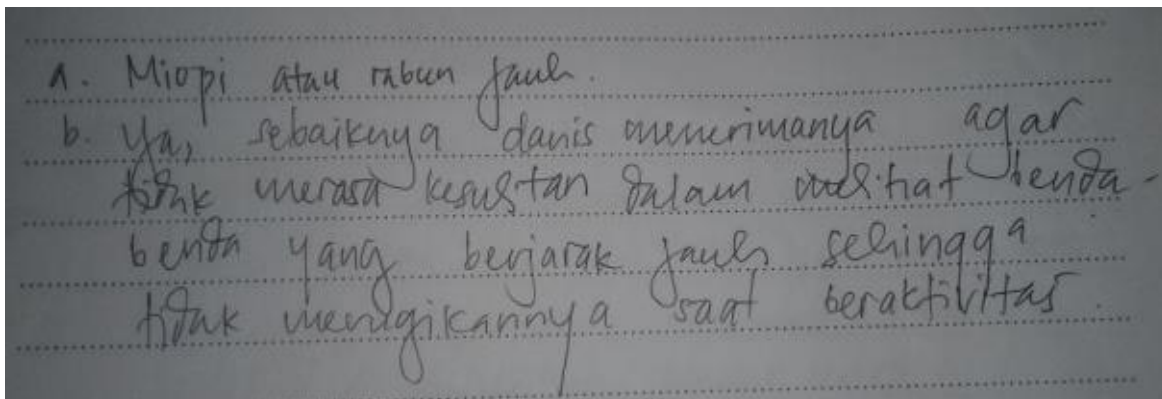 a. Miopi atau rabun jauh.
b. Ya, sebaiknya danis menerimanya agar
tidak merasa kesulitan dalam melihat benda-
benda yang berjarak jauh sehingga
tidak merugikannya saat beraktivitas.